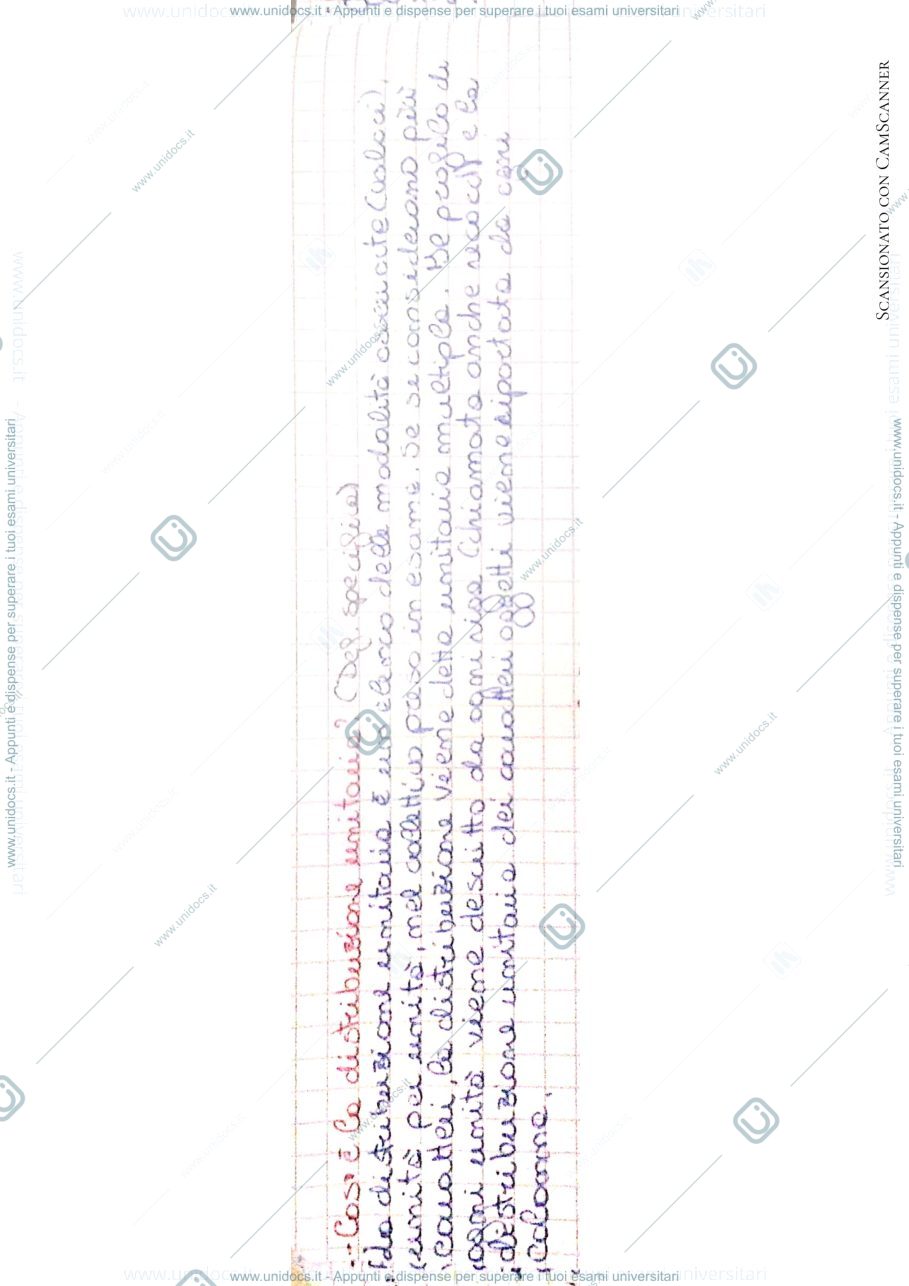 www.unidocs.it - Appunti e dispense per superare i tuoi esami universitari
Cos'è la distribuzione unitaria? (Def. specifica)
La distribuzione unitaria è un elenco delle modalità associate (valori),
unità per unità, nel collettivo preso in esame. Se si considerano più
caratteri, la distribuzione viene detta unitaria multipla. Il profilo di
ogni unità viene descritto da ogni riga (chiamata anche record) e la
distribuzione unitaria dei caratteri oggetti viene riportata da ogni
colonna.
SCANSIONATO CON CAMSCANNER
www.unidocs.it - Appunti e dispense per superare i tuoi esami universitari
www.unidocs.it - Appunti e dispense per superare i tuoi esami universitari
www.unidocs.it - Appunti e dispense per superare i tuoi esami universitari
www.unidocs.it
www.unidocs.it
www.unidocs.it
www.unidocs.it
www.unidocs.it
www.unidocs.it